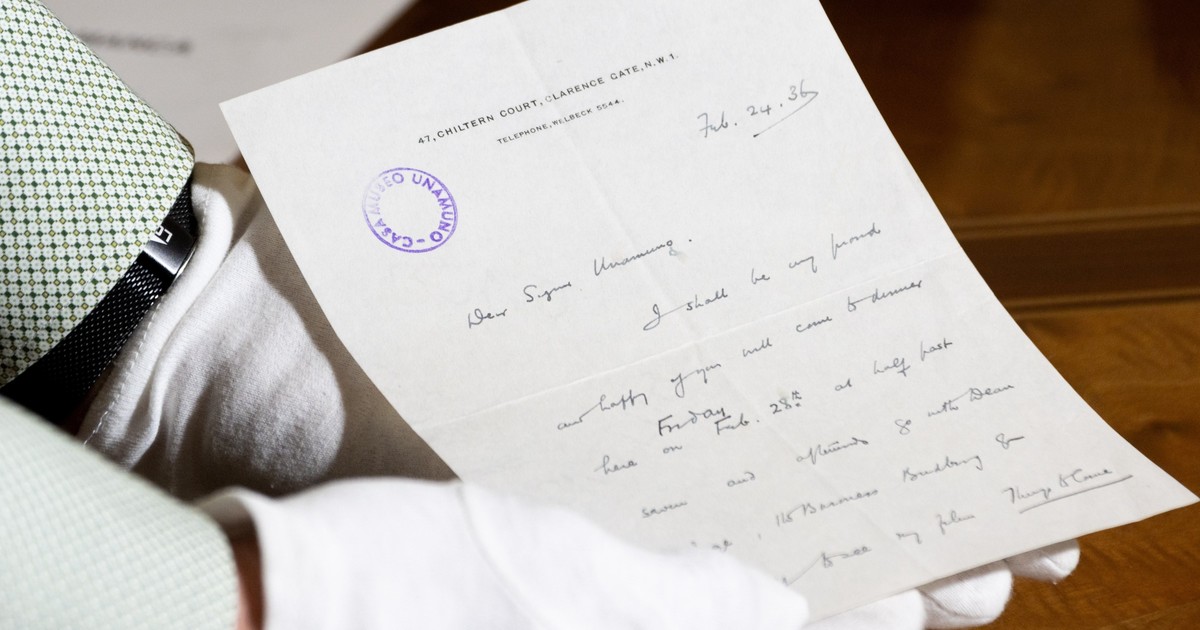 47, CHILTERN COURT, CLARENCE GATE, N.W.1.
TELEPHONE, WELBECK 5544.
Feb. 24. 36
CASA MUSEO UNAMUNO -
Dear Signor Unamuno.
I shall be very proud
and happy if you will come to dinner
here on Friday Feb. 28th at half past
seven and afterwards go with
to see my film Things to Come